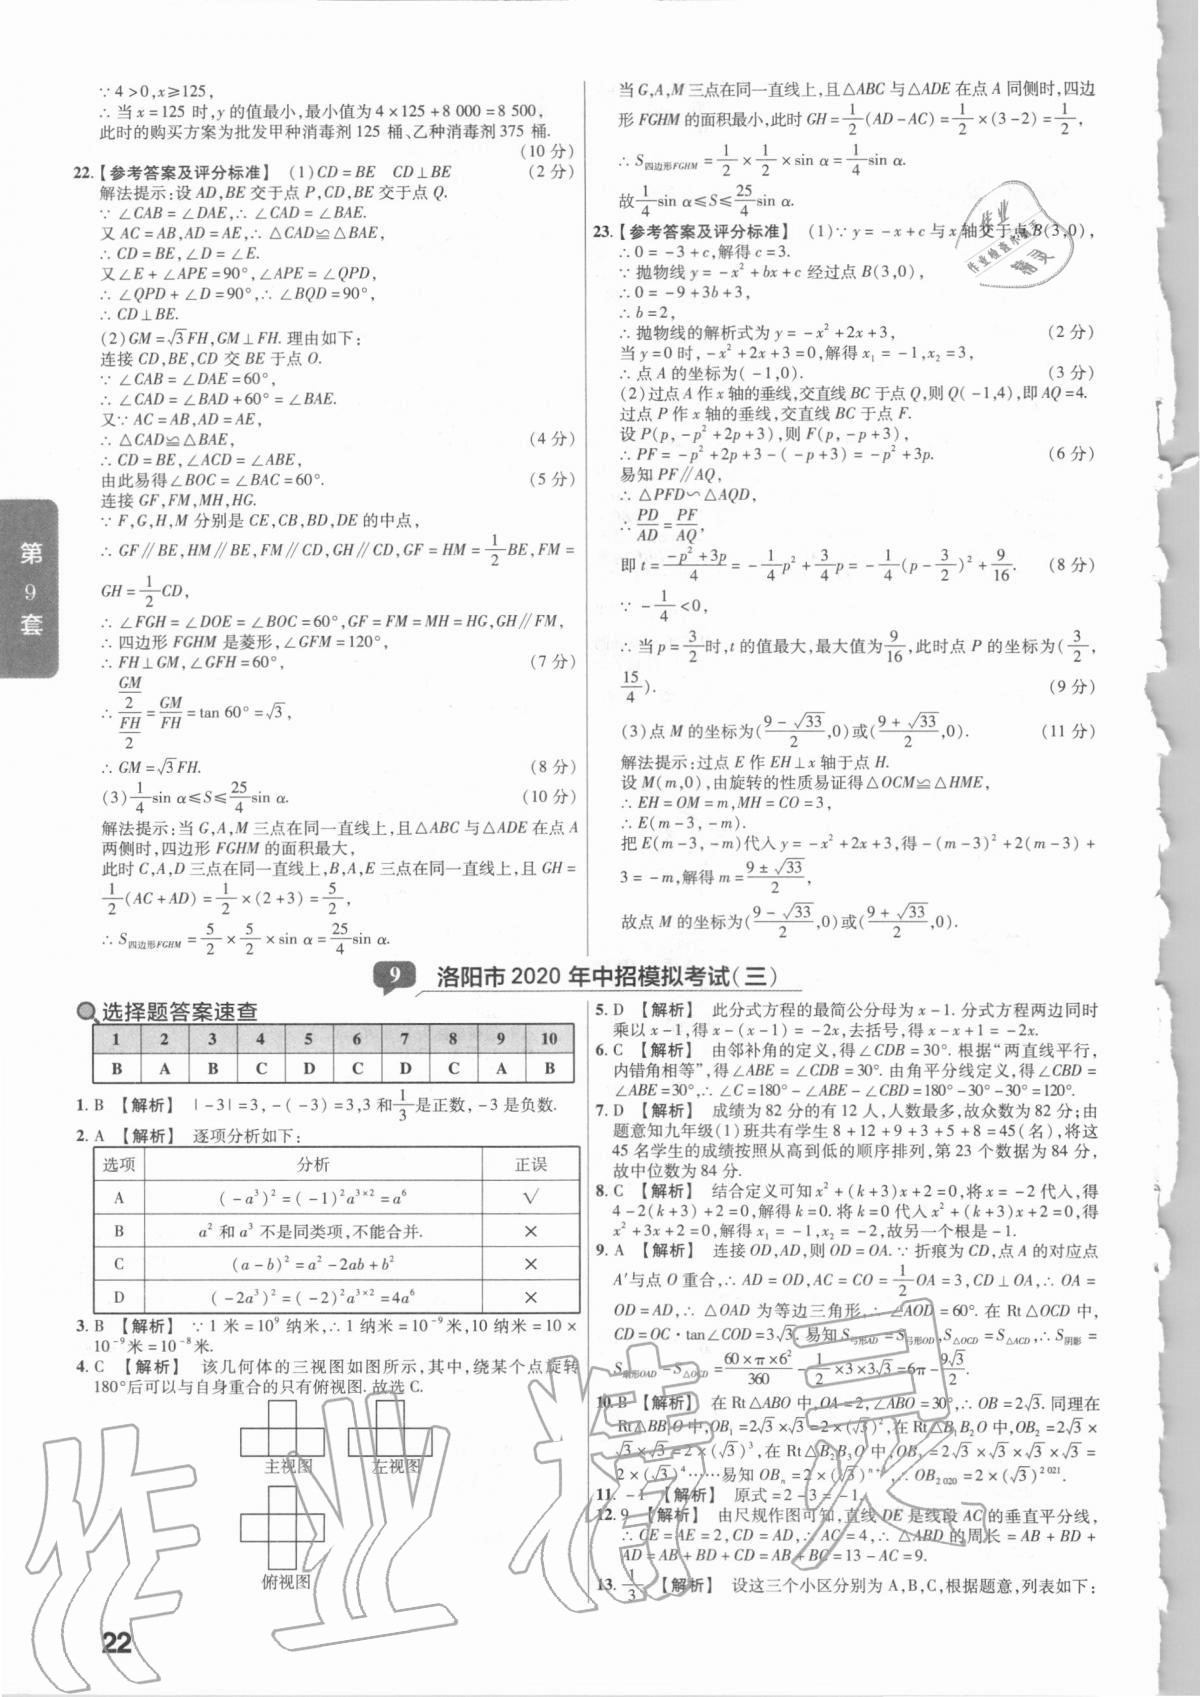 ∵4>0,x≥125,
∴当x=125时,y的值最小,最小值为4×125+8 000=8 500,
此时的购买方案为批发甲种消毒剂125桶、乙种消毒剂375桶.
(10分)
22.【参考答案及评分标准】 (1)CD=BE CD⊥BE (2分)
解法提示:设AD,BE交于点P,CD,BE交于点Q.
∵∠CAB=∠DAE,∴∠CAD=∠BAE.
又AC=AB,AD=AE,∴△CAD≌△BAE,
∴CD=BE,∠D=∠E.
又∠E+∠APE=90°,∠APE=∠QPD,
∴∠QPD+∠D=90°,∴∠BQD=90°,
∴CD⊥BE.
(2)GM=√3FH,GM⊥FH.理由如下:
连接CD,BE,CD交BE于点O.
∵∠CAB=∠DAE=60°,
∴∠CAD=∠BAD+60°=∠BAE.
又∵AC=AB,AD=AE,
∴△CAD≌△BAE, (4分)
∴CD=BE,∠ACD=∠ABE,
由此易得∠BOC=∠BAC=60°. (5分)
连接GF,FM,MH,HG.
∵F,G,H,M分别是CE,CB,BD,DE的中点,
∴GF∥BE,HM∥BE,FM∥CD,GH∥CD,GF=HM=1/2BE,FM=
GH=1/2CD,
∴∠FGH=∠DOE=∠BOC=60°,GF=FM=MH=HG,GH∥FM,
∴四边形FGHM是菱形,∠GFM=120°,
∴FH⊥GM,∠GFH=60°, (7分)
∴(GM/2)/(FH/2)=GM/FH=tan 60°=√3,
∴GM=√3FH. (8分)
(3)1/4sin α≤S≤25/4sin α. (10分)
解法提示:当G,A,M三点在同一直线上,且△ABC与△ADE在点A
两侧时,四边形FGHM的面积最大,
此时C,A,D三点在同一直线上,B,A,E三点在同一直线上,且GH=
1/2(AC+AD)=1/2×(2+3)=5/2,
∴S四边形FGHM=5/2×5/2×sin α=25/4sin α.
当G,A,M三点在同一直线上,且△ABC与△ADE在点A同侧时,四边
形FGHM的面积最小,此时GH=1/2(AD-AC)=1/2×(3-2)=1/2,
∴S四边形FGHM=1/2×1/2×sin α=1/4sin α.
故1/4sin α≤S≤25/4sin α.
23.【参考答案及评分标准】 (1)∵y=-x+c与x轴交于点B(3,0),
∴0=-3+c,解得c=3.
∵抛物线y=-x²+bx+c经过点B(3,0),
∴0=-9+3b+3,
∴b=2,
∴抛物线的解析式为y=-x²+2x+3, (2分)
当y=0时,-x²+2x+3=0,解得x₁=-1,x₂=3,
∴点A的坐标为(-1,0). (3分)
(2)过点A作x轴的垂线,交直线BC于点Q,则Q(-1,4),即AQ=4.
过点P作x轴的垂线,交直线BC于点F.
设P(p,-p²+2p+3),则F(p,-p+3),
∴PF=-p²+2p+3-(-p+3)=-p²+3p. (6分)
易知PF∥AQ,
∴△PFD∽△AQD,
∴PD/AD=PF/AQ,
即t=(-p²+3p)/4=-1/4p²+3/4p=-1/4(p-3/2)²+9/16. (8分)
∵-1/4<0,
∴当p=3/2时,t的值最大,最大值为9/16,此时点P的坐标为(3/2,
15/4). (9分)
(3)点M的坐标为((9-√33)/2,0)或((9+√33)/2,0). (11分)
解法提示:过点E作EH⊥x轴于点H.
设M(m,0),由旋转的性质易证得△OCM≌△HME,
∴EH=OM=m,MH=CO=3,
∴E(m-3,-m).
把E(m-3,-m)代入y=-x²+2x+3,得-(m-3)²+2(m-3)+
3=-m,解得m=(9±√33)/2,
故点M的坐标为((9-√33)/2,0)或((9+√33)/2,0).
第9套
9 洛阳市2020年中招模拟考试(三)
选择题答案速查
1 2 3 4 5 6 7 8 9 10
B A B C D C D C A B
1. B 【解析】 |-3|=3,-(-3)=3,3和1/3是正数,-3是负数.
2. A 【解析】 逐项分析如下:
选项 分析 正误
A (-a³)²=(-1)²a³ˣ²=a⁶ √
B a²和a³不是同类项,不能合并. ×
C (a-b)²=a²-2ab+b² ×
D (-2a³)²=(-2)²a³ˣ²=4a⁶ ×
3. B 【解析】 ∵1米=10⁹纳米,∴1纳米=10⁻⁹米,10纳米=10×
10⁻⁹米=10⁻⁸米.
4. C 【解析】 该几何体的三视图如图所示,其中,绕某个点旋转
180°后可以与自身重合的只有俯视图.故选C.
主视图 左视图
俯视图
5. D 【解析】 此分式方程的最简公分母为x-1.分式方程两边同时
乘以x-1,得x-(x-1)=-2x,去括号,得x-x+1=-2x.
6. C 【解析】 由邻补角的定义,得∠CDB=30°.根据“两直线平行,
内错角相等”,得∠ABE=∠CDB=30°.由角平分线定义,得∠CBD=
∠ABE=30°,∴∠C=180°-∠ABE-∠CBD=180°-30°-30°=120°.
7. D 【解析】 成绩为82分的有12人,人数最多,故众数为82分;由
题意知九年级(1)班共有学生8+12+9+3+5+8=45(名),将这
45名学生的成绩按照从高到低的顺序排列,第23个数据为84分,
故中位数为84分.
8. C 【解析】 结合定义可知x²+(k+3)x+2=0,将x=-2代入,得
4-2(k+3)+2=0,解得k=0.将k=0代入x²+(k+3)x+2=0,得
x²+3x+2=0,解得x₁=-1,x₂=-2,故另一个根是-1.
9. A 【解析】 连接OD,AD,则OD=OA.∵折痕为CD,点A的对应点
A′与点O重合,∴AD=OD,AC=CO=1/2OA=3,CD⊥OA,∴OA=
OD=AD,∴△OAD为等边三角形,∴∠AOD=60°.在Rt△OCD中,
CD=OC·tan∠COD=3√3.易知S弓形AD=S弓形OD,S△OCD=S△ACD,∴S阴影=
S扇形OAD-S△OCD=60×π×6²/360-1/2×3×3√3=6π-9√3/2.
10. B 【解析】 在Rt△ABO中,OA=2,∠ABO=30°,∴OB=2√3.同理在
Rt△BB₁O中,OB₁=2√3×√3=2×(√3)²,在Rt△B₁B₂O中,OB₂=2√3×
√3×√3=2×(√3)³,在Rt△B₂B₃O中,OB₃=2√3×√3×√3×√3=
2×(√3)⁴……易知OBₙ=2×(√3)ⁿ⁺¹,∴OB₂₀₂₀=2×(√3)²⁰²¹.
11. -1 【解析】 原式=2-3=-1.
12. 9 【解析】 由尺规作图可知,直线DE是线段AC的垂直平分线,
∴CE=AE=2,CD=AD,∴AC=4,∴△ABD的周长=AB+BD+
AD=AB+BD+CD=AB+BC=13-AC=9.
13. 1/3 【解析】 设这三个小区分别为A,B,C,根据题意,列表如下:
22
作业精灵
作业
作业检查小帮手
精灵